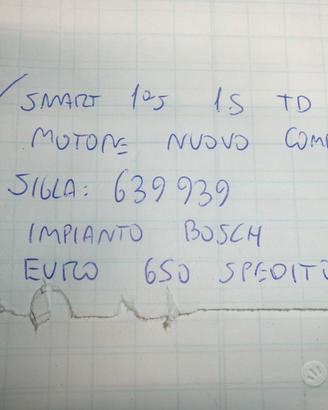 SMART 105 1.5 TD
MOTORE NUOVO COM
SIGLA: 639939
IMPIANTO BOSCH
EURO 650 SPEDITO